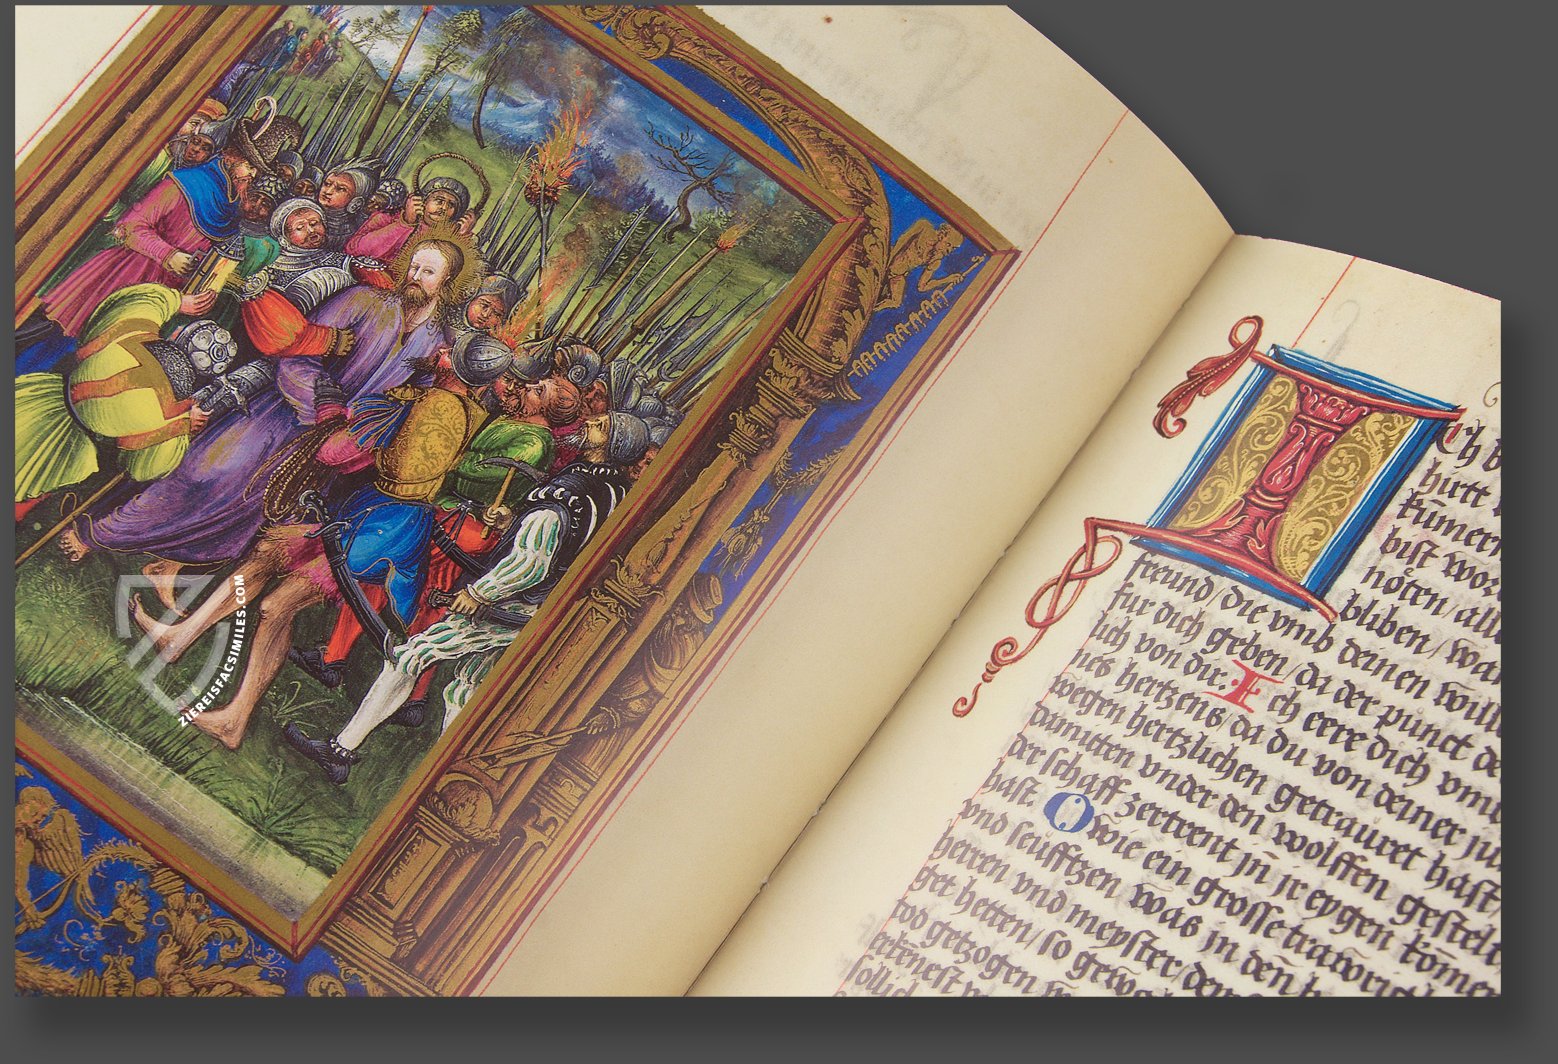 ZIEREISFACSIMILES.COM
Ich
hirtt
kūmern
bist wor
nöten/ alle
bliben/ wan
freund/ die vmb deinen will
fur dich geben/ da der punct de
lich von dir. Ich erre dich vmb
nes hertzens/ da du von deiner ju
wegen hertzlichen getrauret hast/
damitten vnder den wolffen gestele
der schaff zertrent jn jr eygen kōme
hast. O wie ein grosse
vnd seufftzen was jn den
herren vnd meyster/ dem
get hetten/ so
tod getzogen
erkēnest
sollich